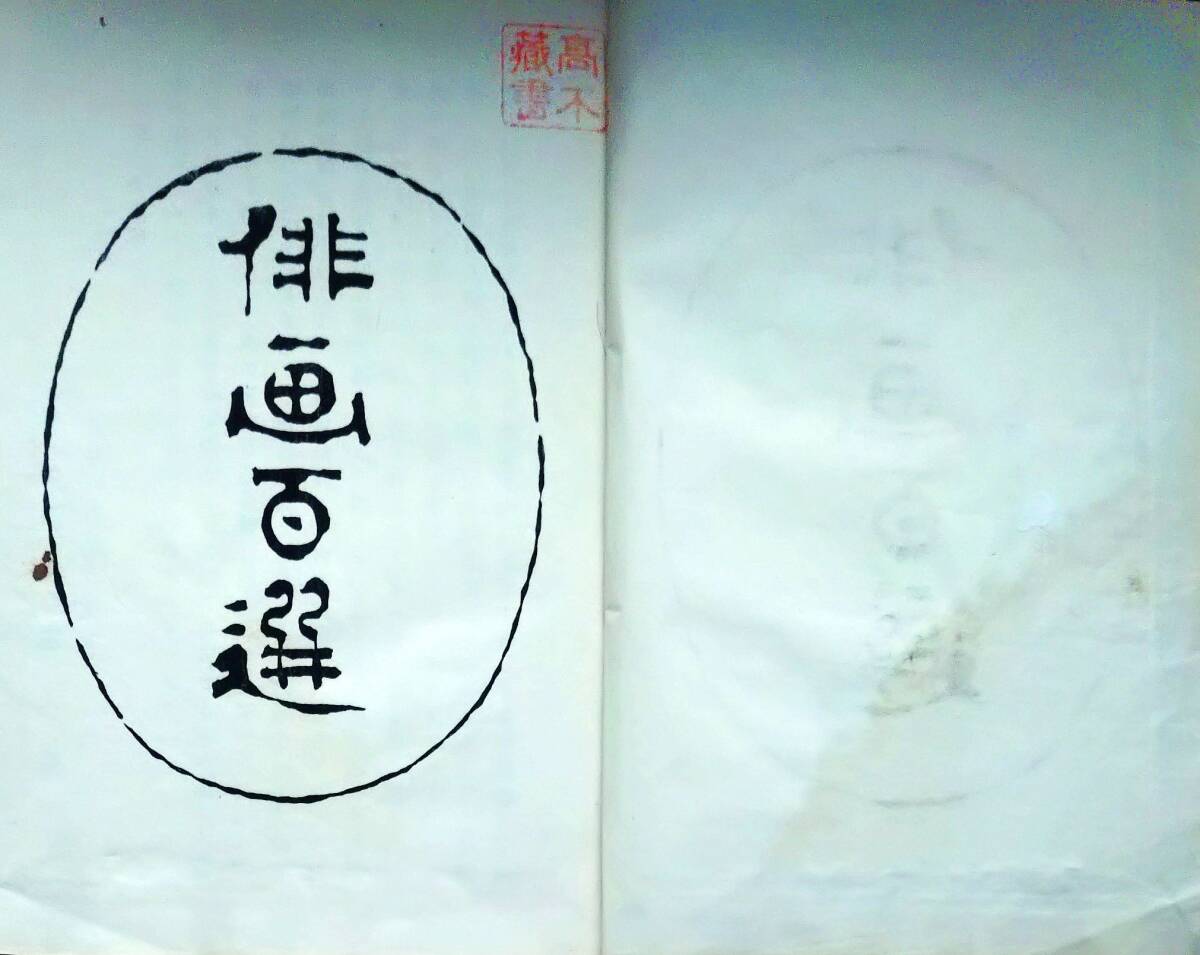 俳画百選
高木
藏書